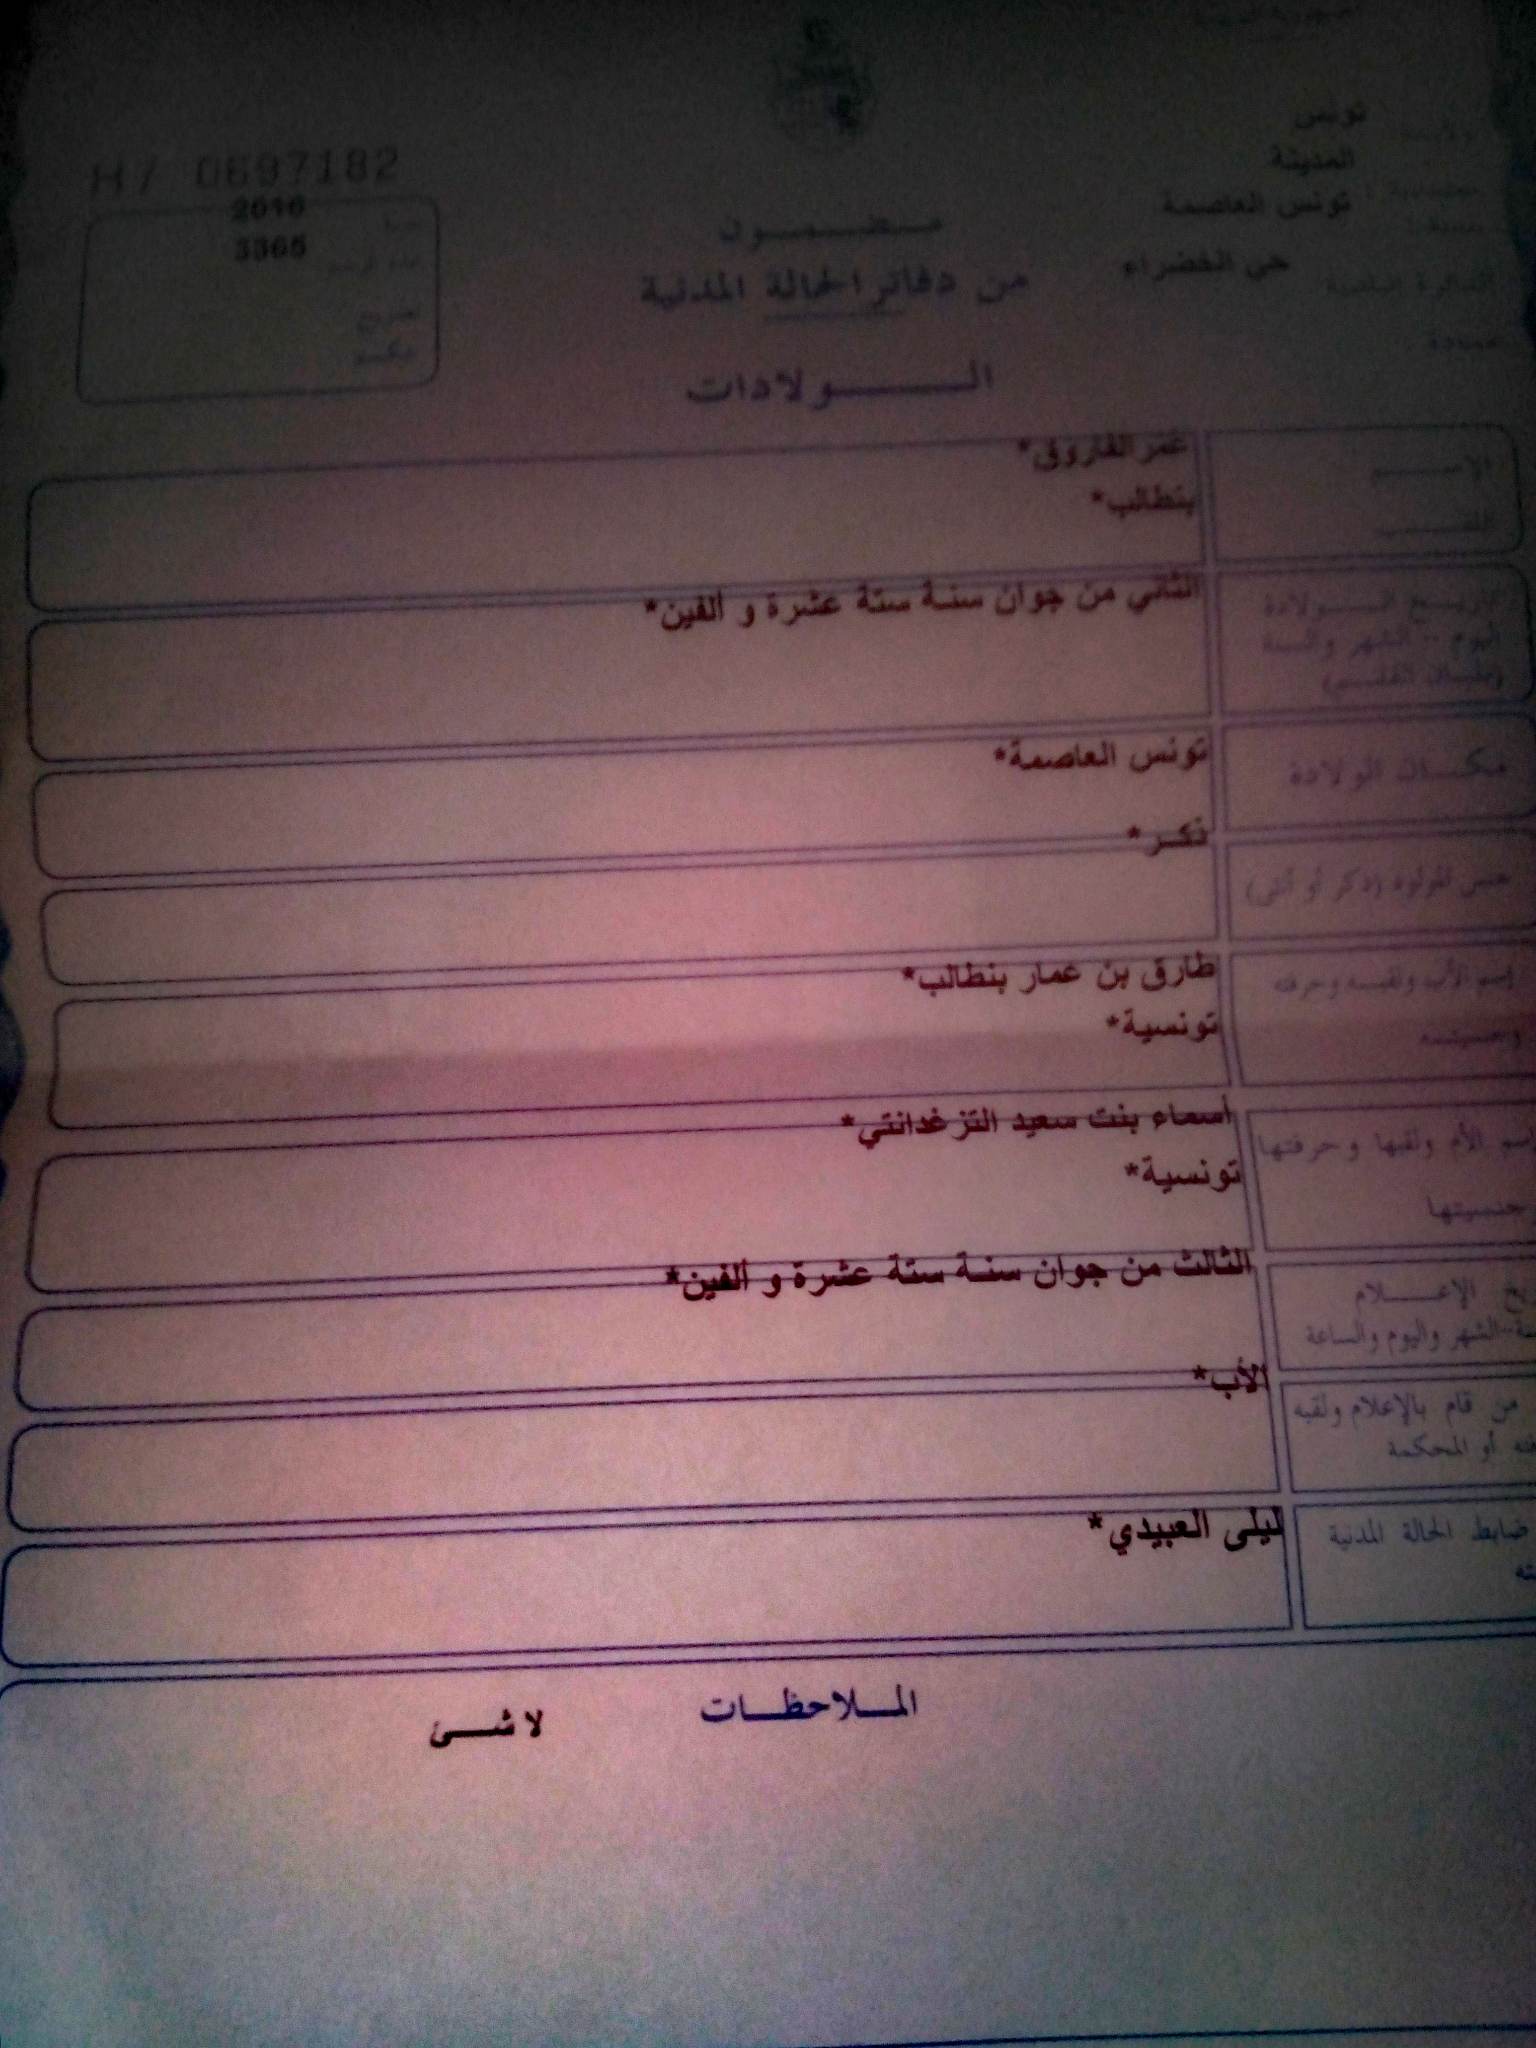 الجمهورية التونسية
ولاية تونس
المدينة
بلدية : تونس العاصمة
الدائرة البلدية حي الخضراء
عمادة
H7 0697182
سنة 2016
عدد الرسم 3365
مضمون
من دفاتر الحالة المدنية
الولادات
الإسم عمر الفاروق*
اللقب بنطالب*
تاريخ الولادة الثاني من جوان سنة ستة عشرة و الفين*
اليوم - الشهر والسنة
(بلسان القلم)
مكان الولادة تونس العاصمة*
جنس المولود (ذكر أو أنثى) ذكر*
إسم الأب ولقبه وحرفته طارق بن عمار بنطالب*
وجنسيته تونسية*
إسم الأم ولقبها وحرفتها أسماء بنت سعيد التزغدانتي*
جنسيتها تونسية*
يخ الإعلام الثالث من جوان سنة ستة عشرة و الفين*
ـة-الشهر واليوم والساعة
من قام بالإعلام ولقبه الأب*
ـته أو المحكمة
ضابط الحالة المدنية ليلى العبيدي*
ـته
الملاحظات لا شئ